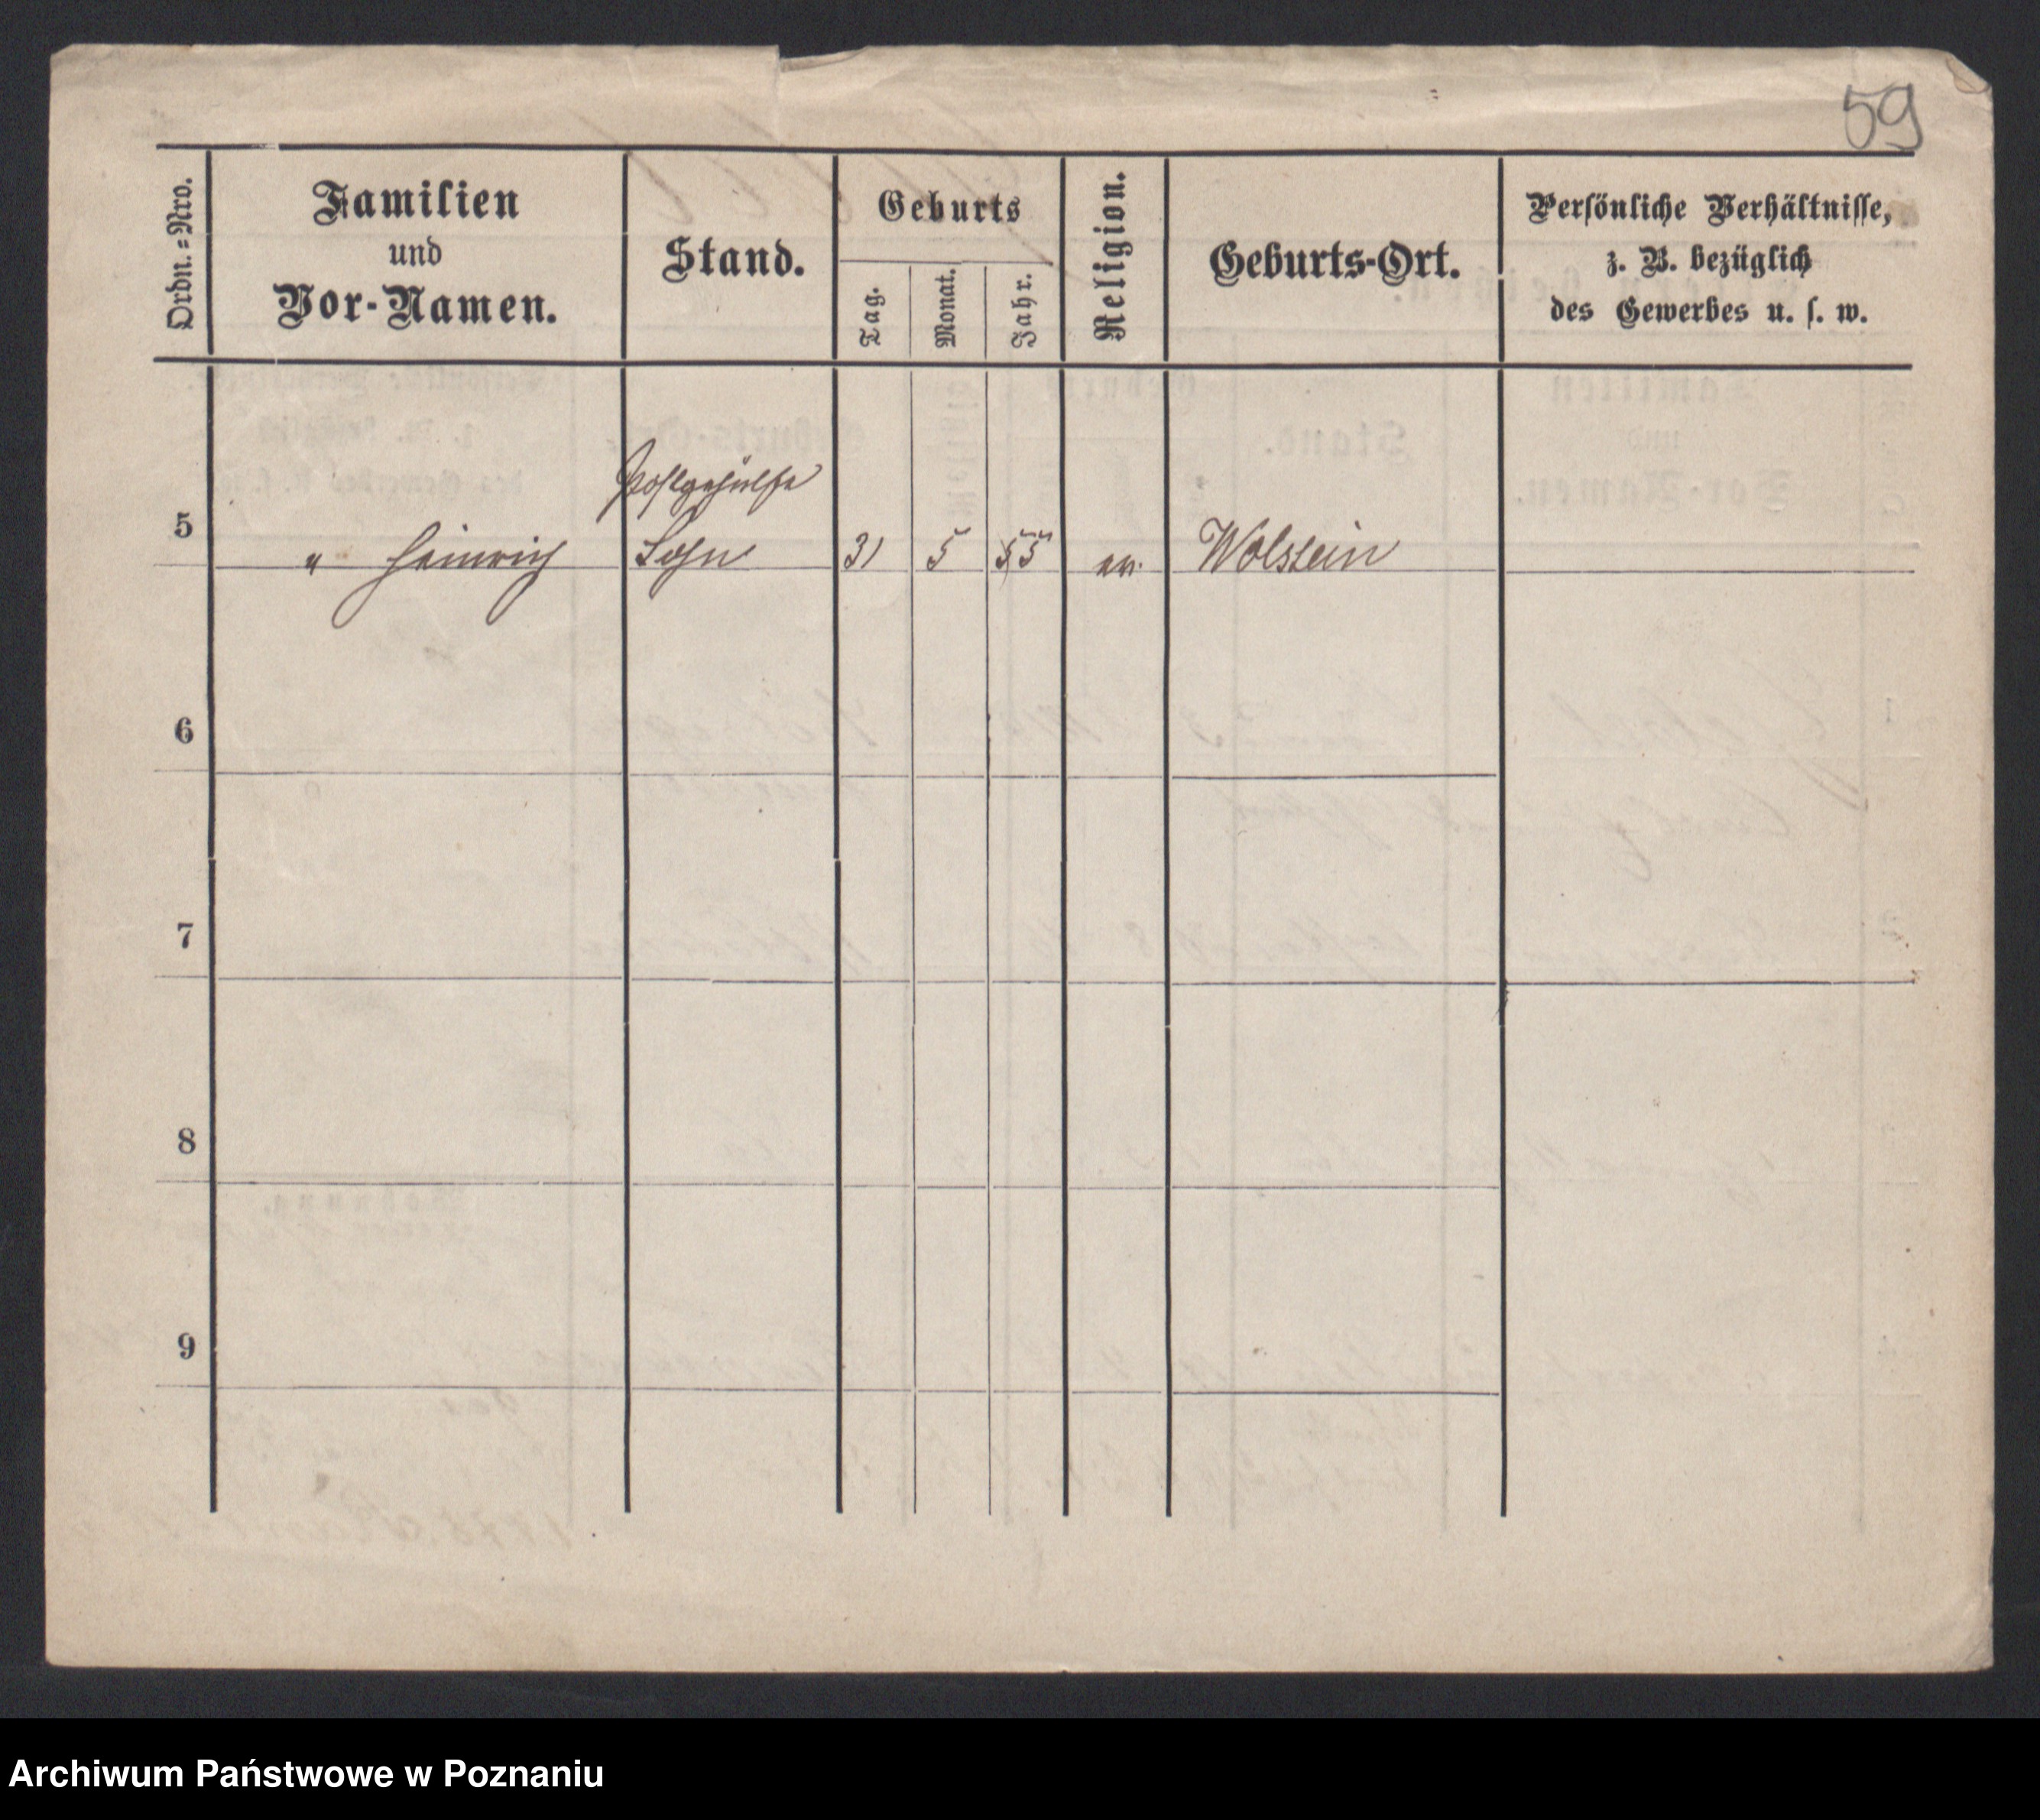 59
Ordn.=Nro.
Familien
und
Vor-Namen.
Stand.
Geburts
Tag.
Monat.
Jahr.
Religion.
Geburts-Ort.
Persönliche Verhältnisse,
z. B. bezüglich
des Gewerbes u. s. w.
Postgehülfe
5 " Heinrich Sohn 31 5 55 ev. Wolstein
6
7
8
9
Archiwum Państwowe w Poznaniu